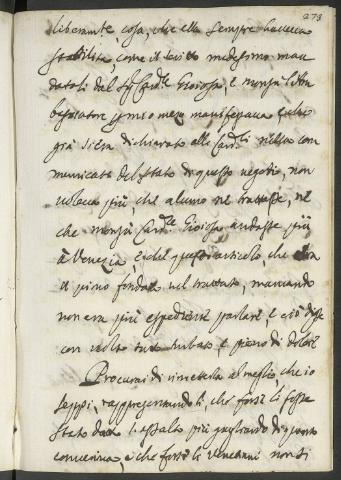 273
liberam.te cosa, che ella sempre haveva
stabilita, come il scritto medesimo man
datoli dal S.r Card.le Gioiosa, e mons.r l'Am
basciatore p mio mezo manifestava, e che
già s'era dichiarato alli Card.li nella com
municata del stato di questo negotio, non
voleva più, che alcuno ne trattasse, nè
che mons.r Card.le Gioiosa andasse più
à Venezia, e che questo articolo, che era
il primo fondato nel trattato, mancando
non era più espediente parlare, e ciò disse
con volto tutto turbato, e pieno di dolore
Procurai di rimetterla al meglio, che io
seppi, rappresentandoli, che forse li fosse
stato dato l'assalto più gagliardo di quanto
conveniva, e che forse li Venetiani non si